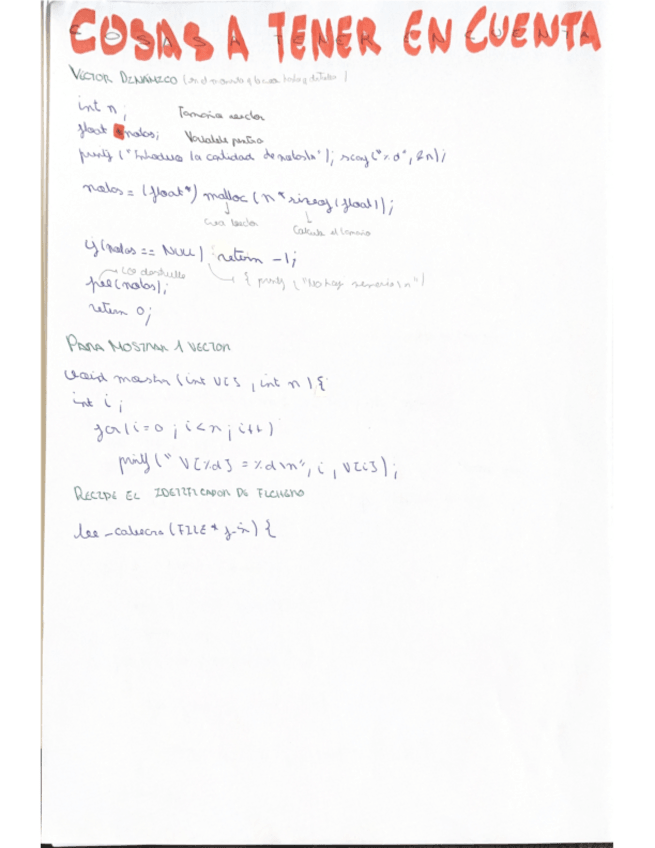 COSAS A TENER EN CUENTA
VECTOR DINÁMICO (en el momento q la crea
int n; Tamaño vector
float *notas; Variable puntero
printf ("Introduce la cantidad de notas\n"); scanf ("%d", &n);
notas = (float*) malloc (n * sizeof (float));
Crea vector Calcula el tamaño
if (notas == NULL) return -1;
Los destruye { printf ("No hay memoria\n")
free (notas);
return 0;
PARA MOSTRAR 1 VECTOR
void mostrar (int V[], int n) {
int i;
for (i=0; i<n; i++)
printf (" V[%d] = %d\n", i, V[i]);
RECIBE EL IDETIFICADOR DE FICHERO
lee_cabecera (FILE * f_in) {